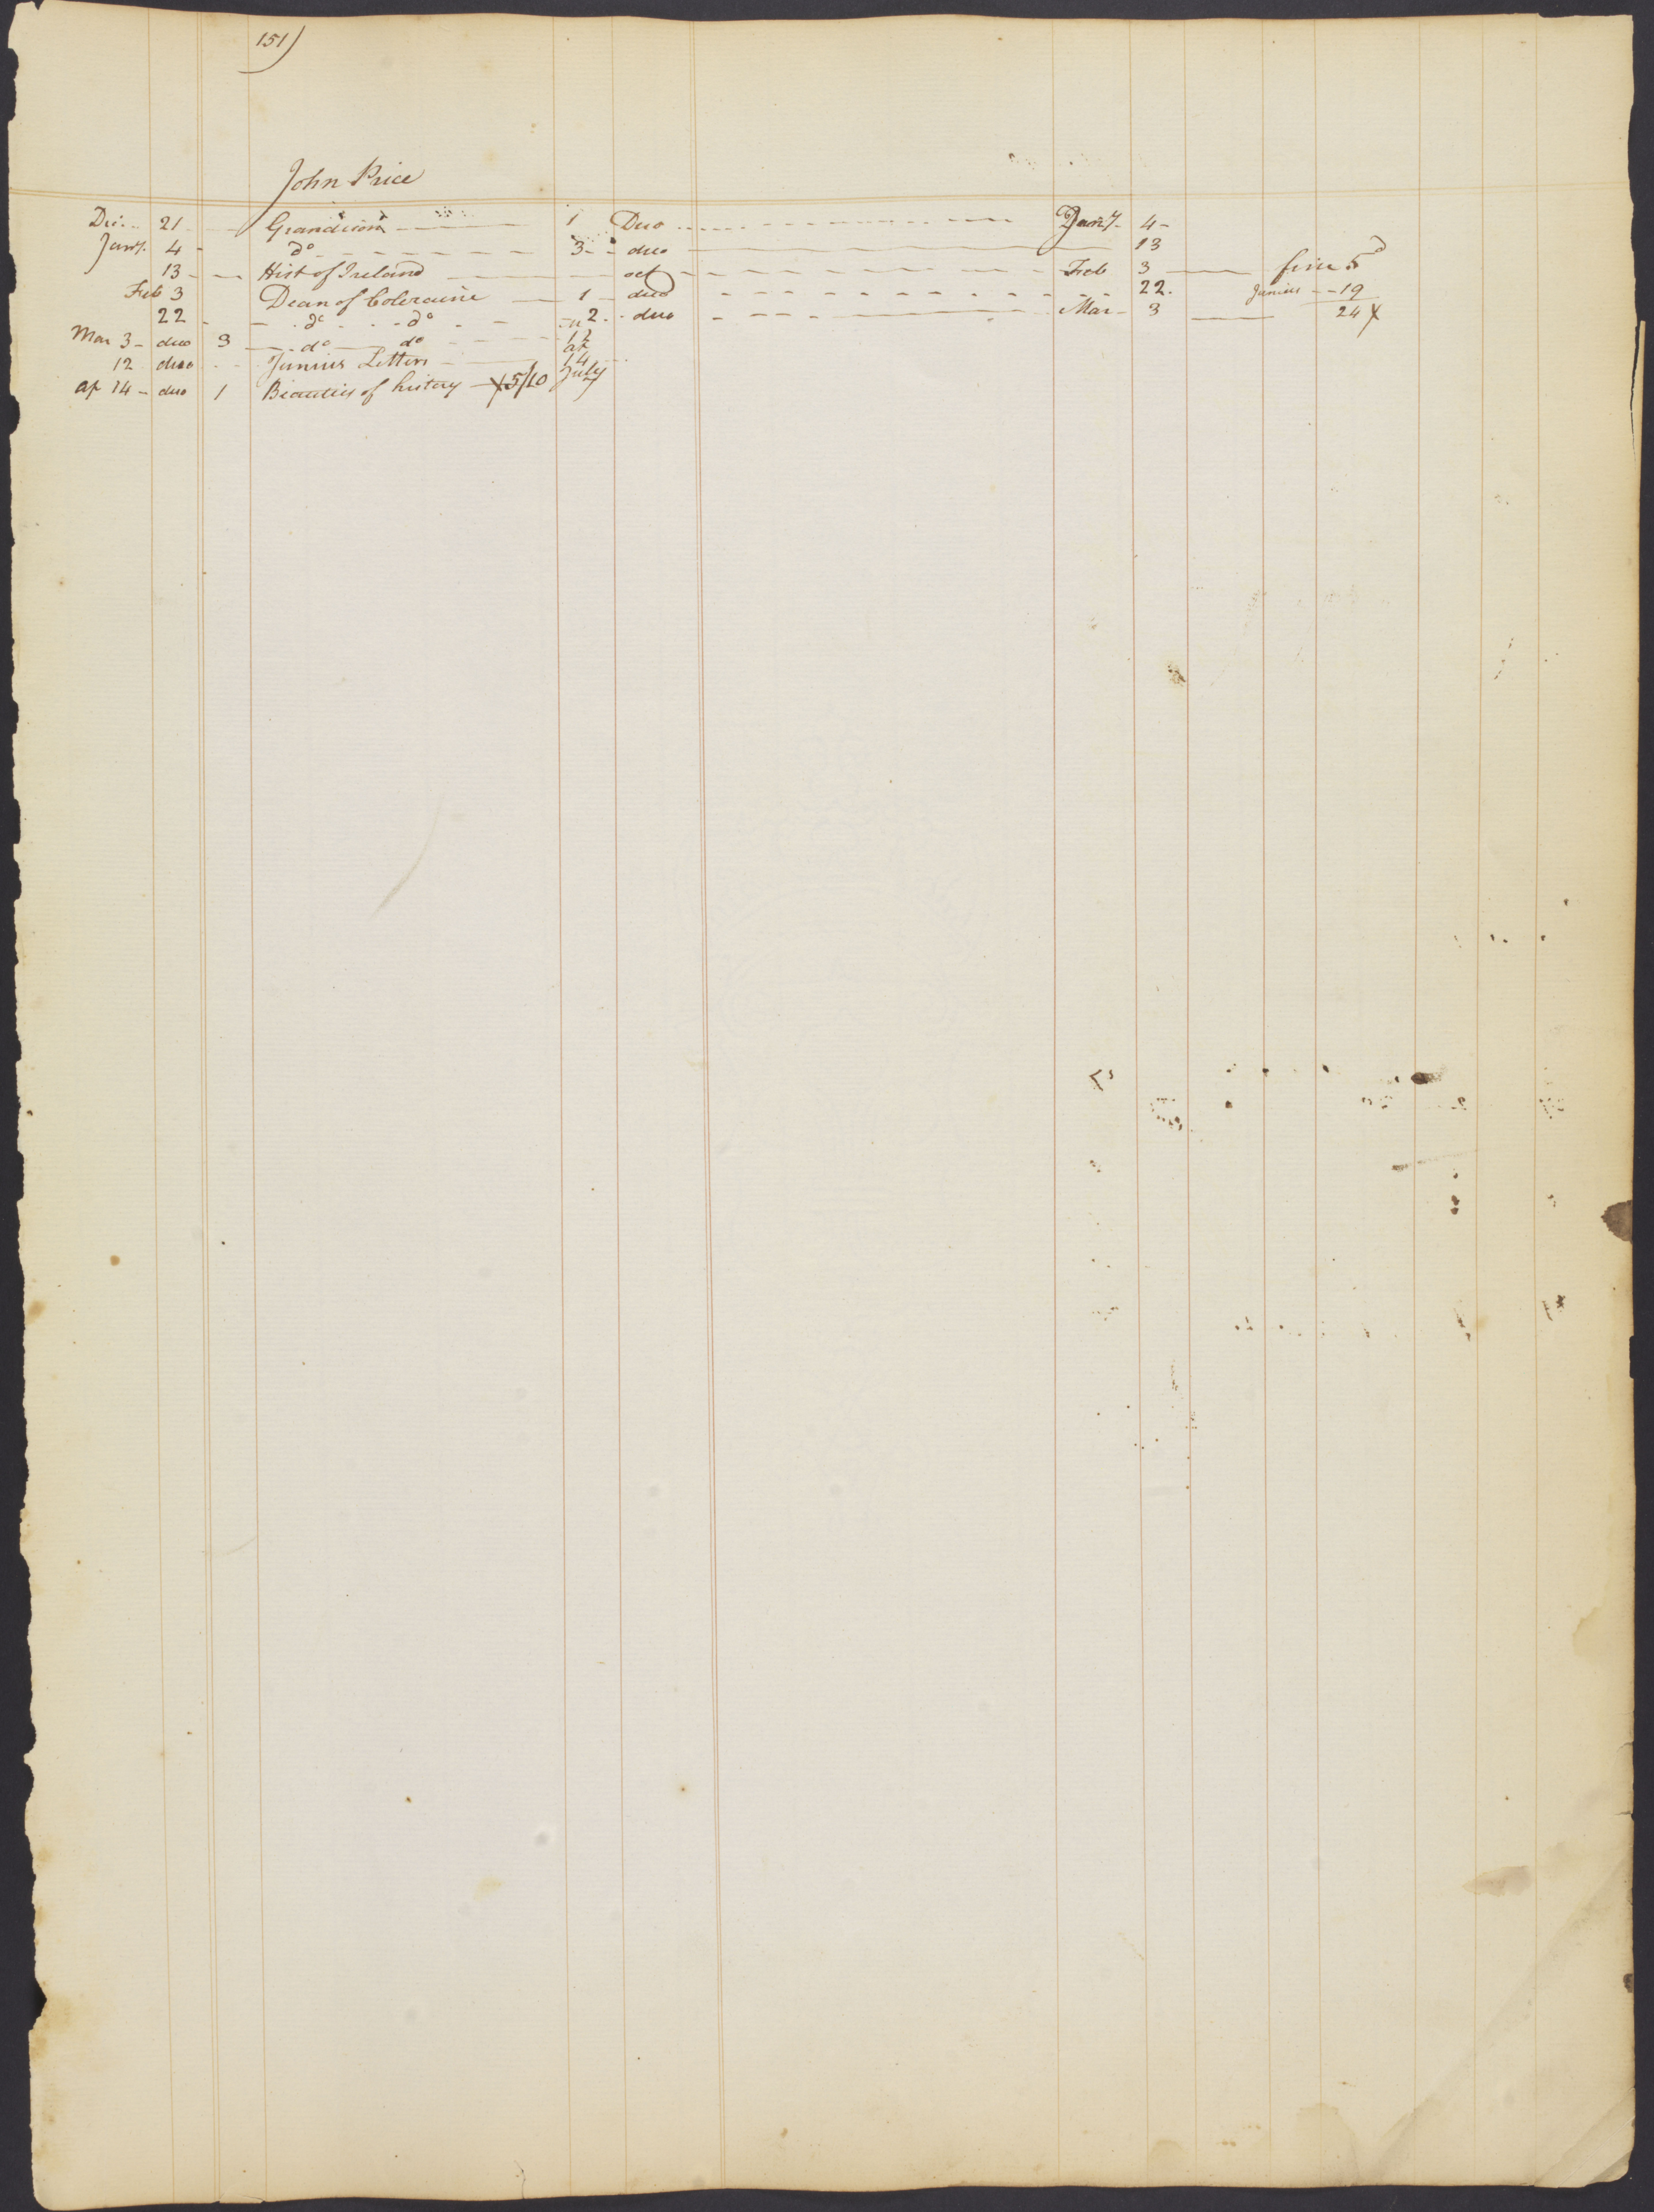 151)
John Price
Dec. 21 Grandison 1 Duo Jany. 4
Jany. 4 do 3 duo 13
13 Hist of Ireland oct Feb 3 fine 5d
Feb 3 Dean of Coleraine 1 duo 22. Junius 19
22 do do 2 duo Mar 3 24 X
Mar 3 duo 3 do do 12
12 duo Junius Letters ap 14
ap 14 duo 1 Beauties of history X 5/10 July